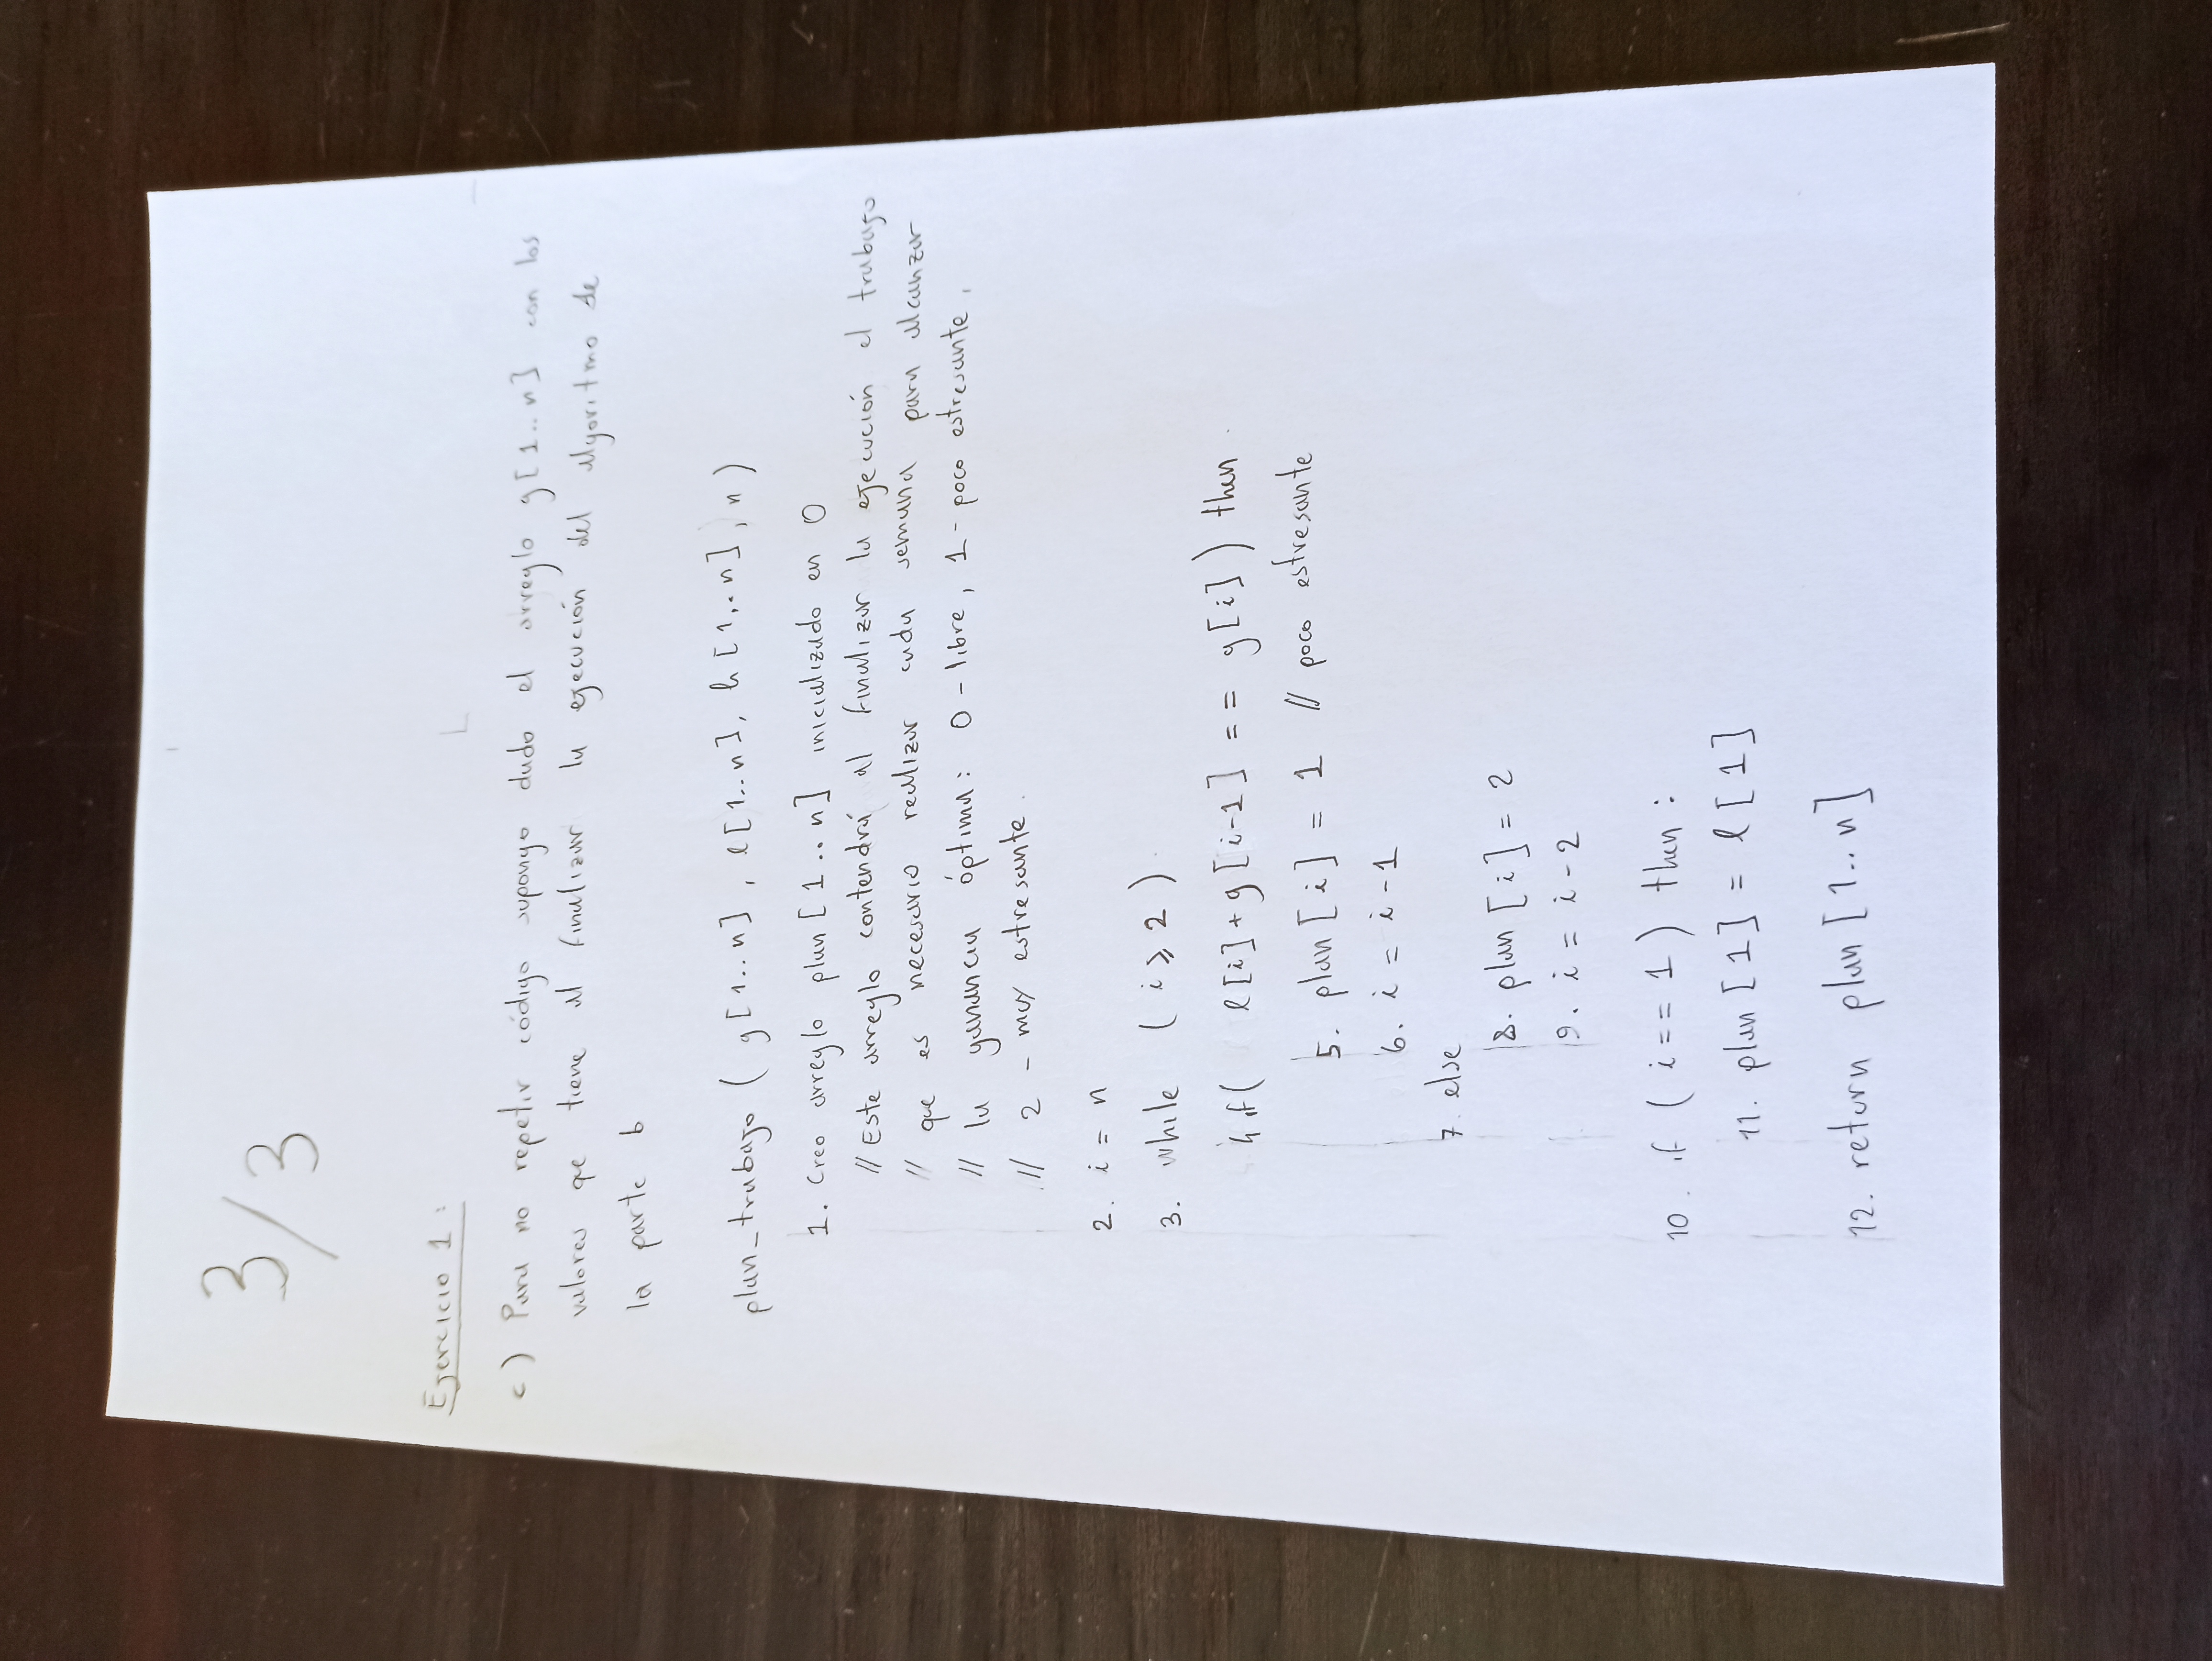 3/3
Ejercicio 1:
c) Para no repetir código supongo dado el arreglo g[1..n] con los
valores que tiene al finalizar la ejecución del algoritmo de
la parte b
plan_trabajo (g[1..n], l[1..n], h[1..n], n)
1. Creo arreglo plan[1..n] inicializado en 0
// Este arreglo contendrá al finalizar la ejecución el trabajo
// que es necesario realizar cada semana para alcanzar
// la ganancia óptima: 0 - libre, 1 - poco estresante,
// 2 - muy estresante.
2. i = n
3. while (i ≥ 2)
4. if( l[i]+g[i-1] == g[i]) then
5. plan[i] = 1 // poco estresante
6. i = i-1
7. else
8. plan[i] = 2
9. i = i-2
10. if (i == 1) then:
11. plan[1] = l[1]
12. return plan[1..n]